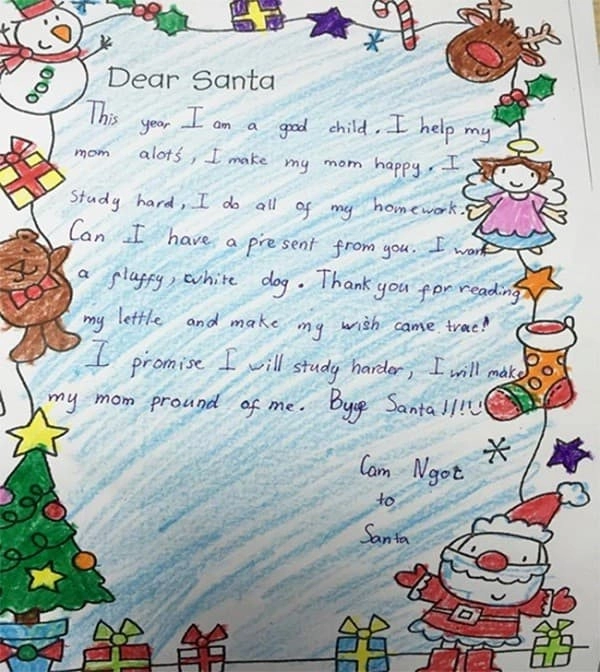 Dear Santa
This year I am a good child. I help my
mom alots, I make my mom happy. I
study hard, I do all of my homework.
Can I have a present from you. I want
a fluffy, white dog. Thank you for reading
my lettle and make my wish came trae!
I promise I will study harder, I will make
my mom pround of me. Bye Santa!!!
Cam Ngot
to
Santa